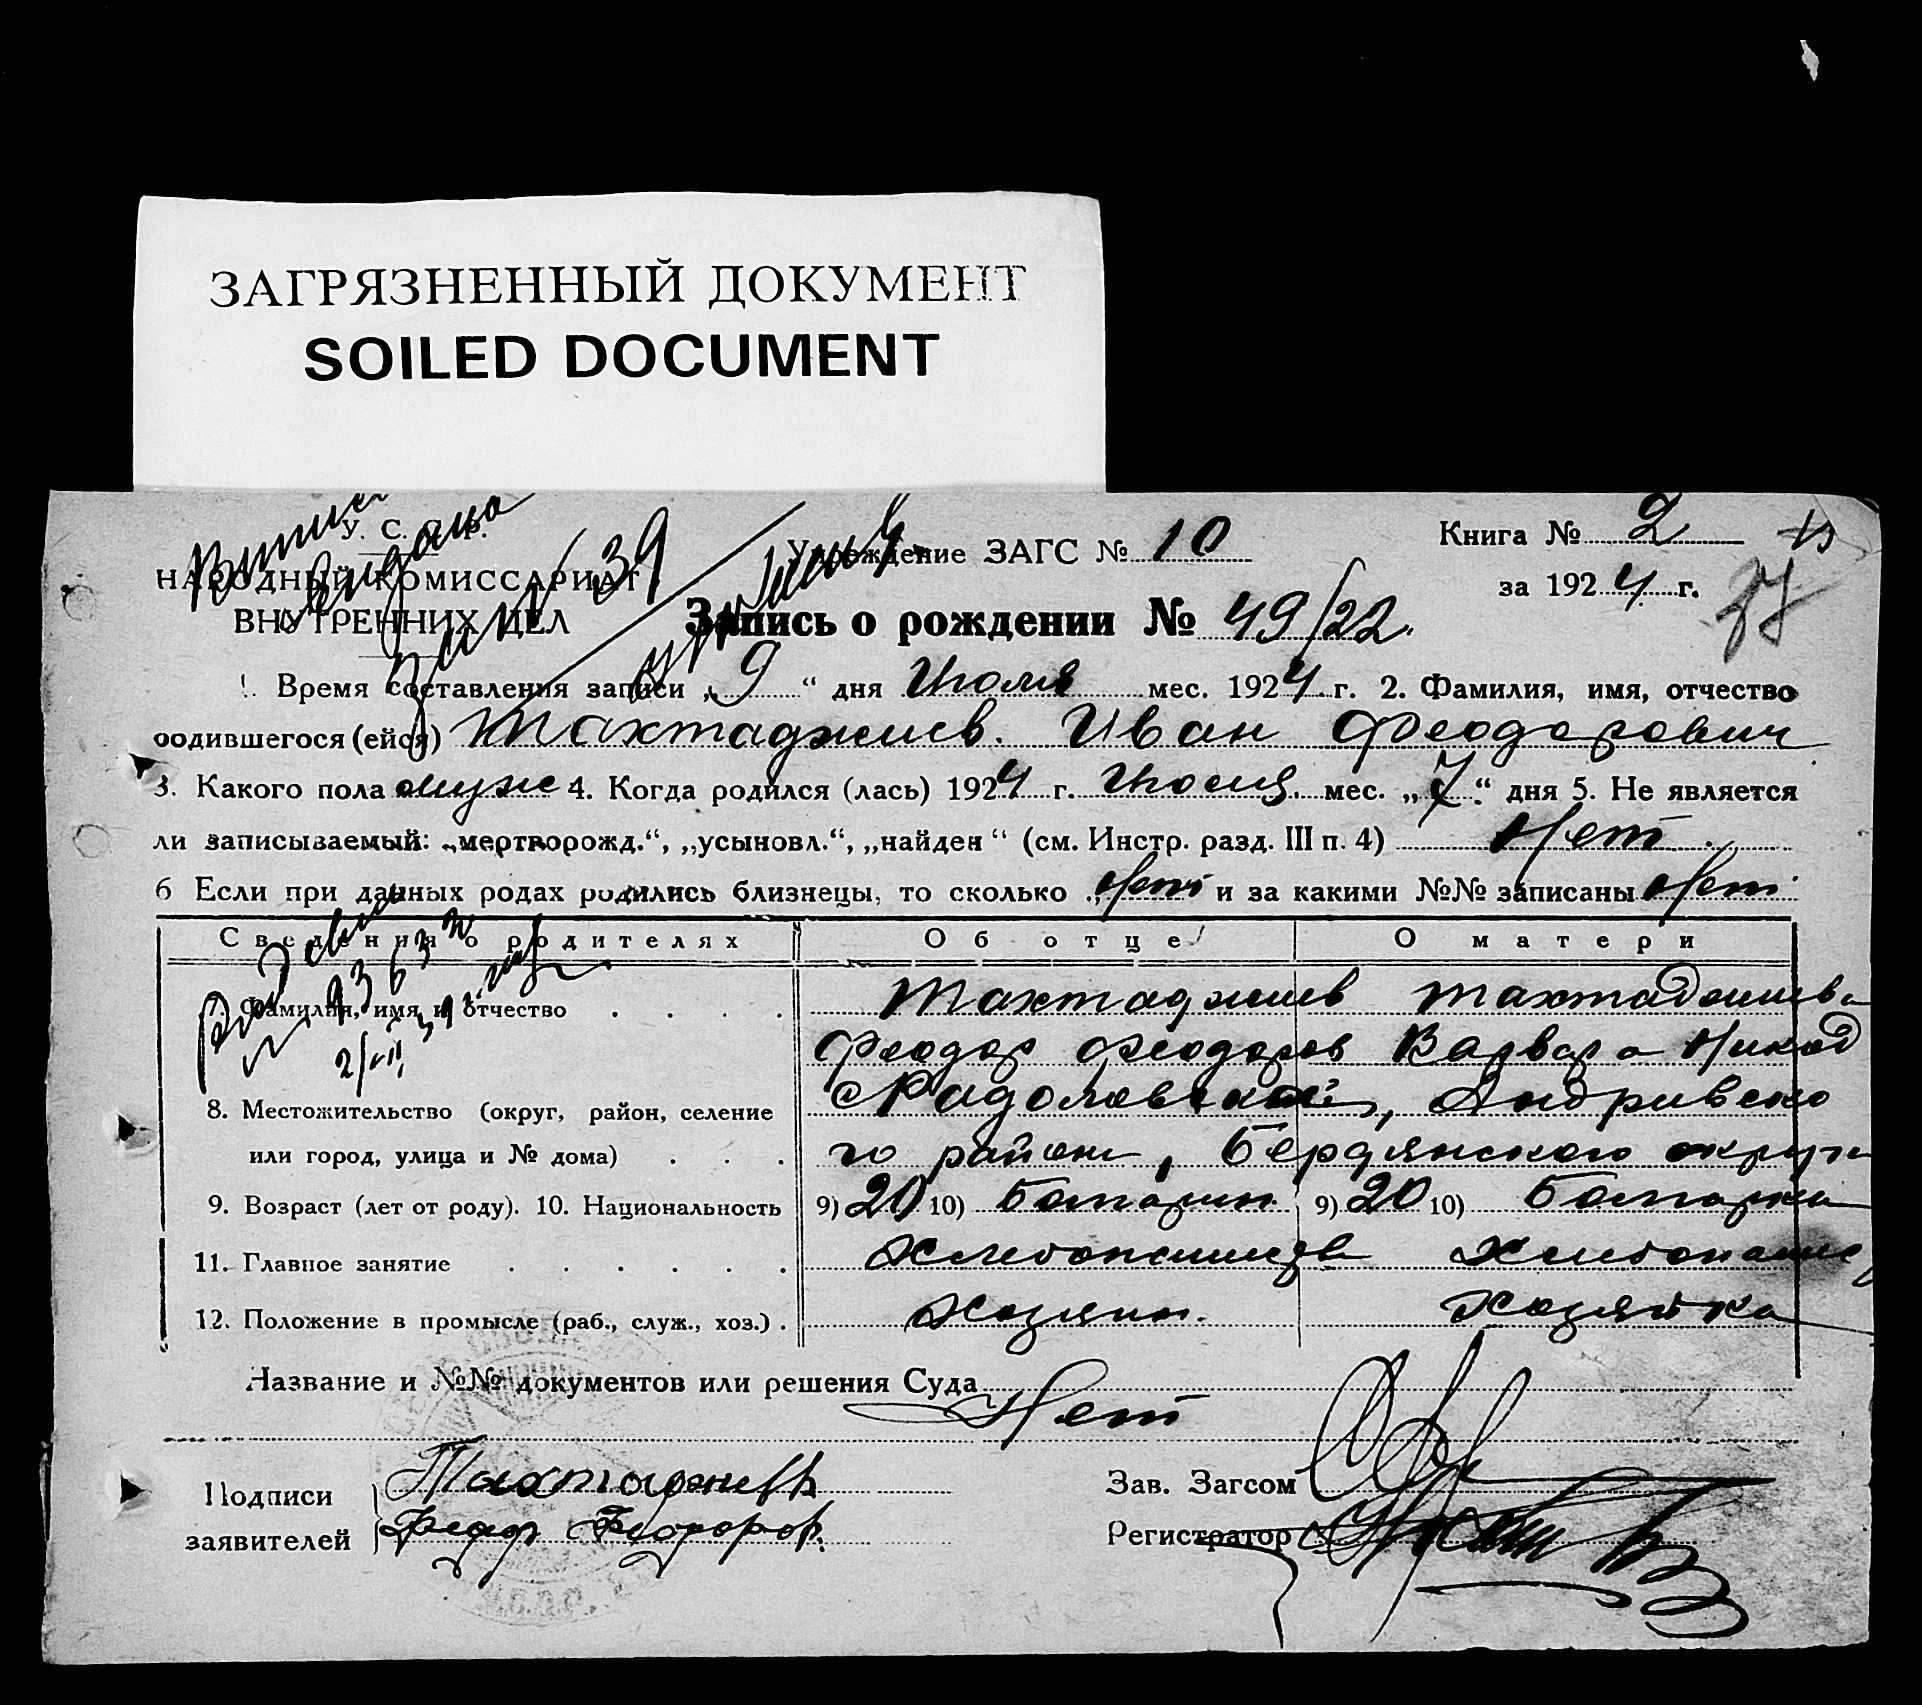 ЗАГРЯЗНЕННЫЙ ДОКУМЕНТ
SOILED DOCUMENT
У. С. С. Р.
НАРОДНЫЙ КОМИССАРИАТ
ВНУТРЕННИХ ДЕЛ
Учреждение ЗАГС № 10
Книга № 2
за 1924 г.
Запись о рождении № 49/22.
1. Время составления записи „9“ дня Июля мес. 1924 г. 2. Фамилия, имя, отчество
родившегося (ейся) Тахтаджиев. Иван Феодорович
3. Какого пола муж 4. Когда родился (лась) 1924 г. Июля. мес. „7“ дня 5. Не является
ли записываемый: „мертворожд.“, „усыновл.“, „найден“ (см. Инстр. разд. III п. 4) Нет.
6 Если при данных родах родились близнецы, то сколько „Нет и за какими №№ записаны Нет.
Сведения о родителях Об отце О матери
7. Фамилия, имя и отчество Тахтаджиев Тахтаджиева
Феодор Феодоров Варвара Никод
8. Местожительство (округ, район, селение Андривско
или город, улица и № дома) го района, Бердянского округа
9. Возраст (лет от роду). 10. Национальность 9) 20 10) Болгарин 9) 20 10) Болгарка
11. Главное занятие Хлебопашец
12. Положение в промысле (раб., служ., хоз.) Хозяин. Хозяйка
Название и №№ документов или решения Суда
Нет
Подписи Тахтаджиевъ
заявителей Федор Федоров.
Зав. Загсом
Регистратор